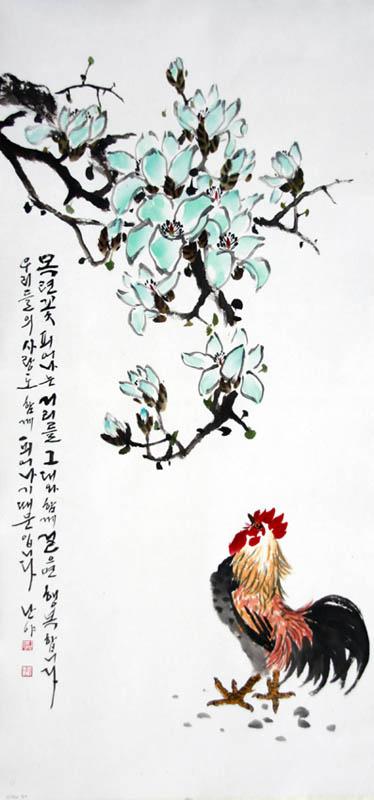 목련꽃 피어나는 거리를 그대와 함께 걸으면 행복합니다
우리들의 사랑도 함께 피어나기 때문입니다